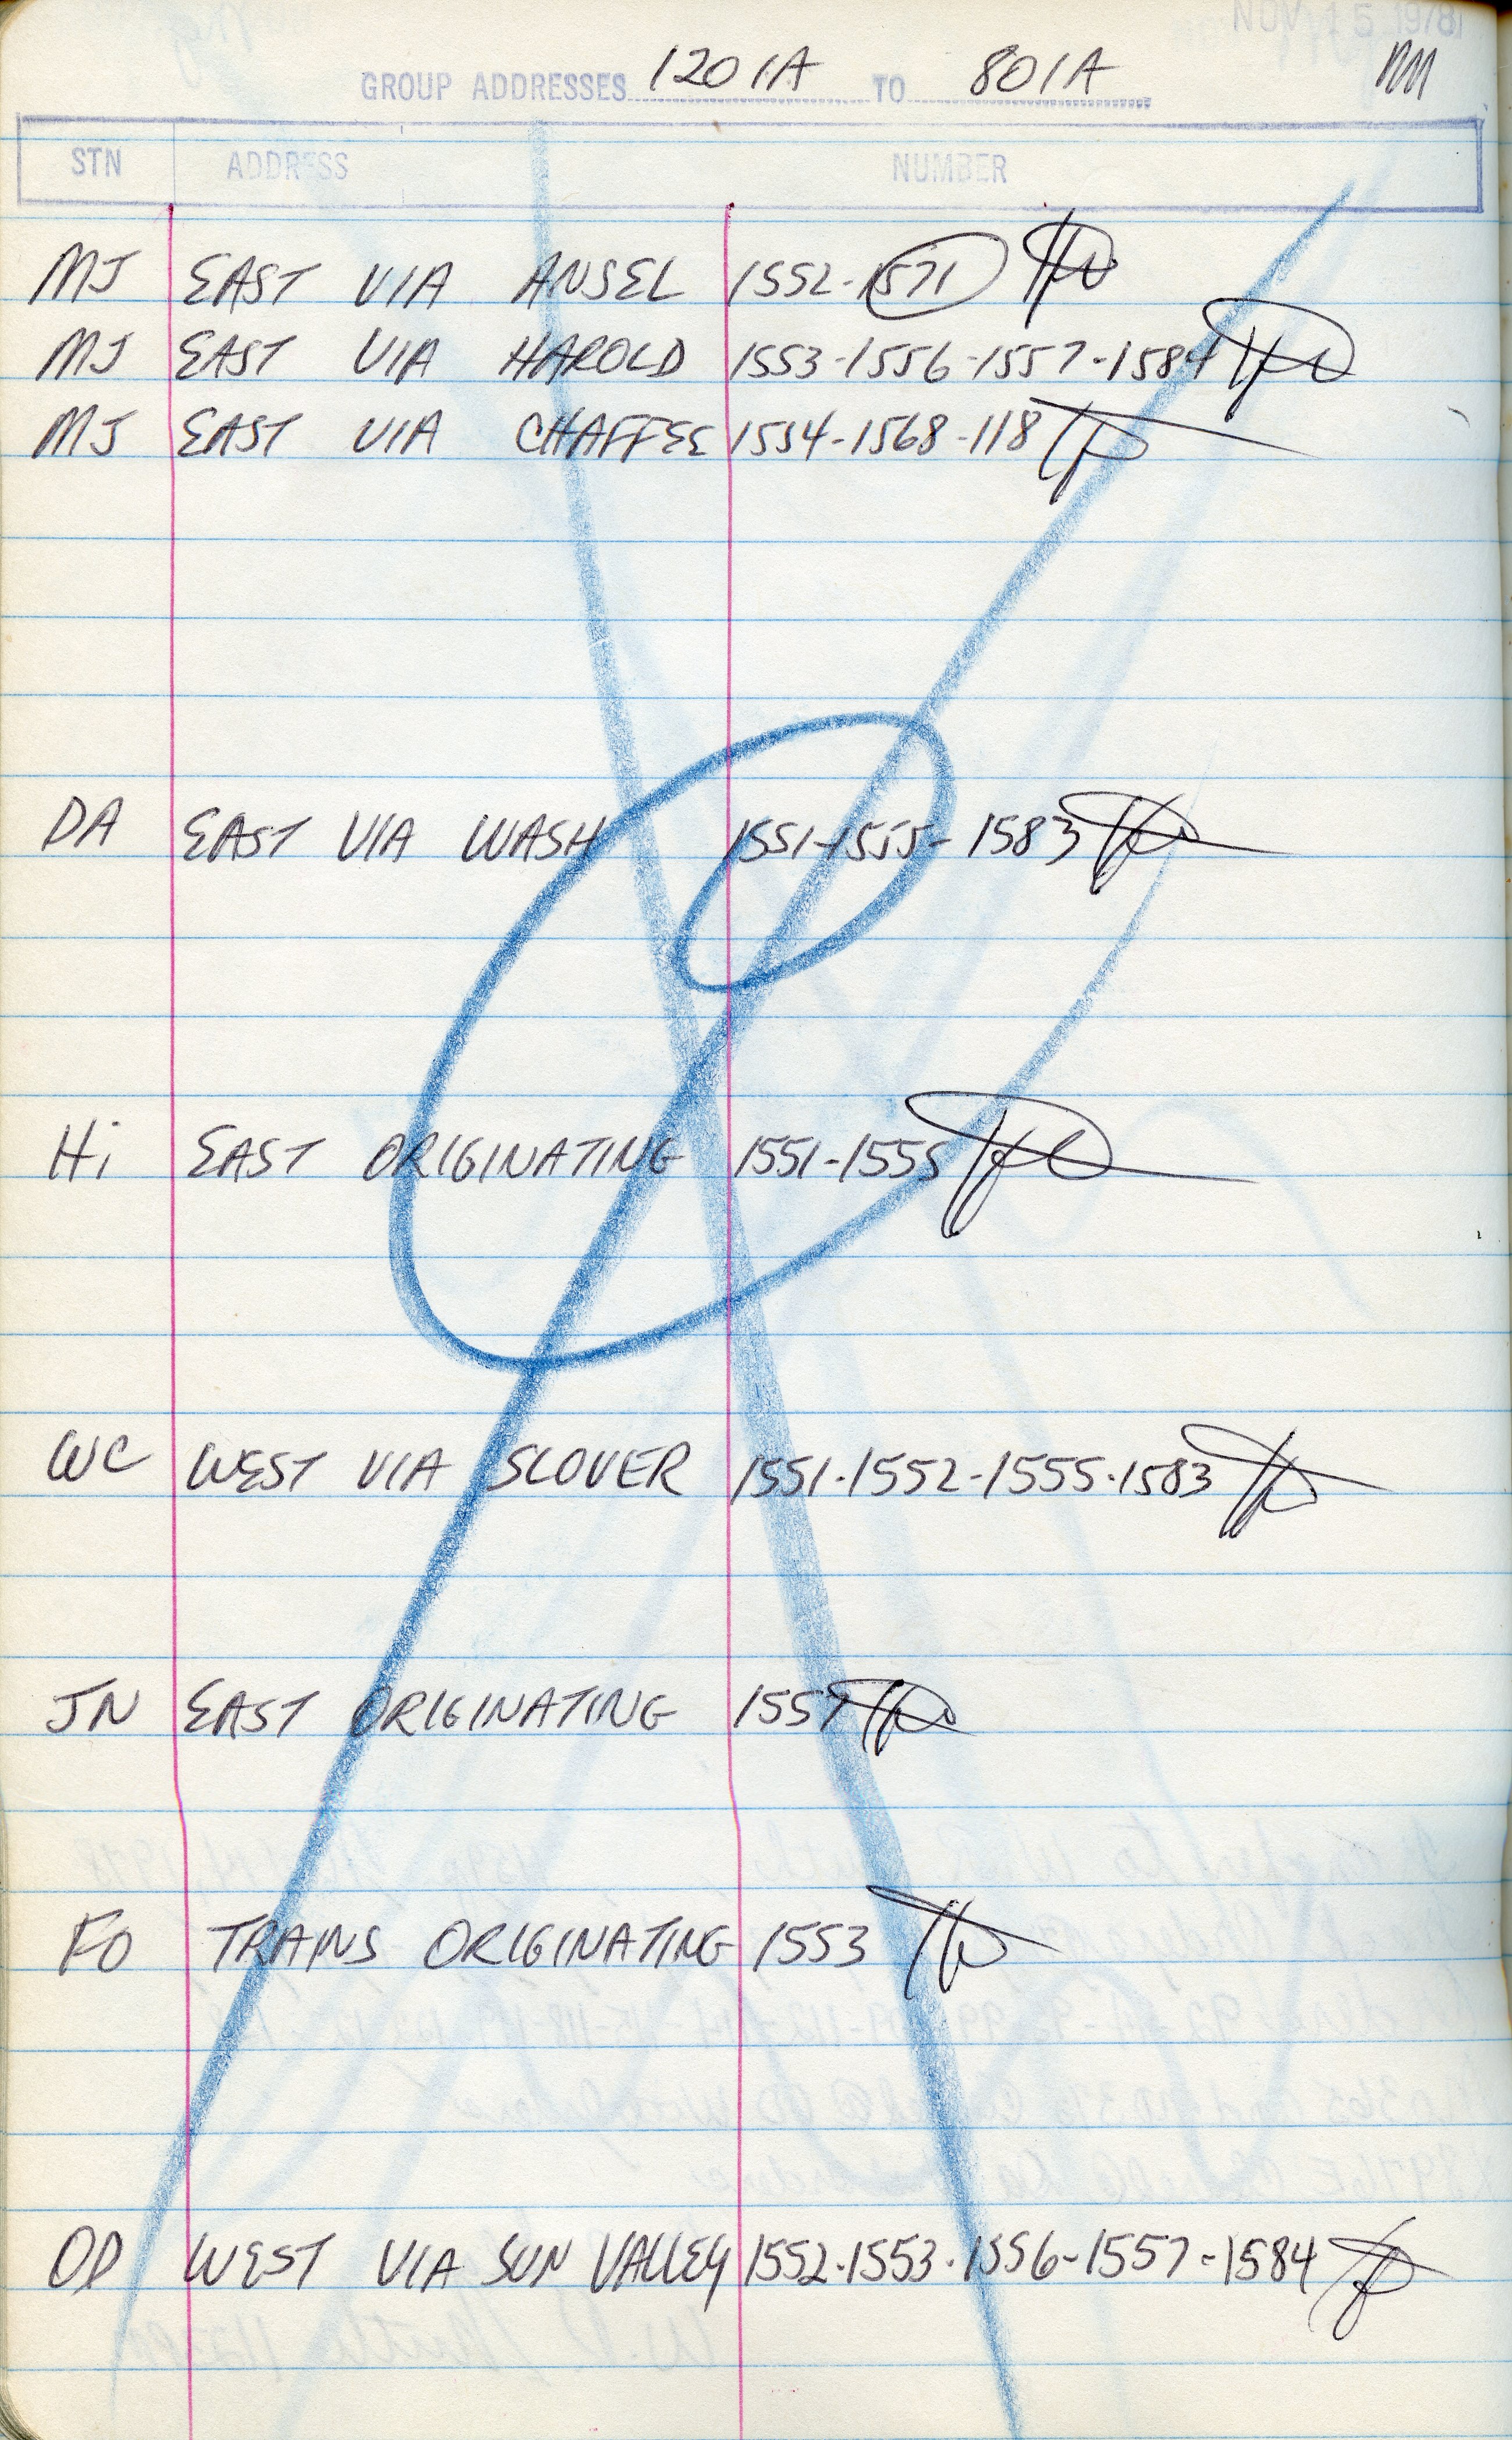 NOV 15 1978
GROUP ADDRESSES 1201A TO 801A
STN ADDRESS NUMBER
MJ EAST VIA ANSEL 1552-1571
MJ EAST VIA HAROLD 1553-1556-1557-1584
MJ EAST VIA CHAFFEE 1554-1568-118
DA EAST VIA WASH 1551-1555-1583
Hi EAST ORIGINATING 1551-1555
WC WEST VIA SLOVER 1551-1552-1555-1583
JN EAST ORIGINATING 1557
FO TRAINS ORIGINATING 1553
OD WEST VIA SUN VALLEY 1552-1553-1556-1557-1584